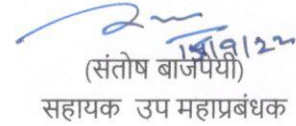 19/9/22
(संतोष बाजपेयी)
सहायक उप महाप्रबंधक